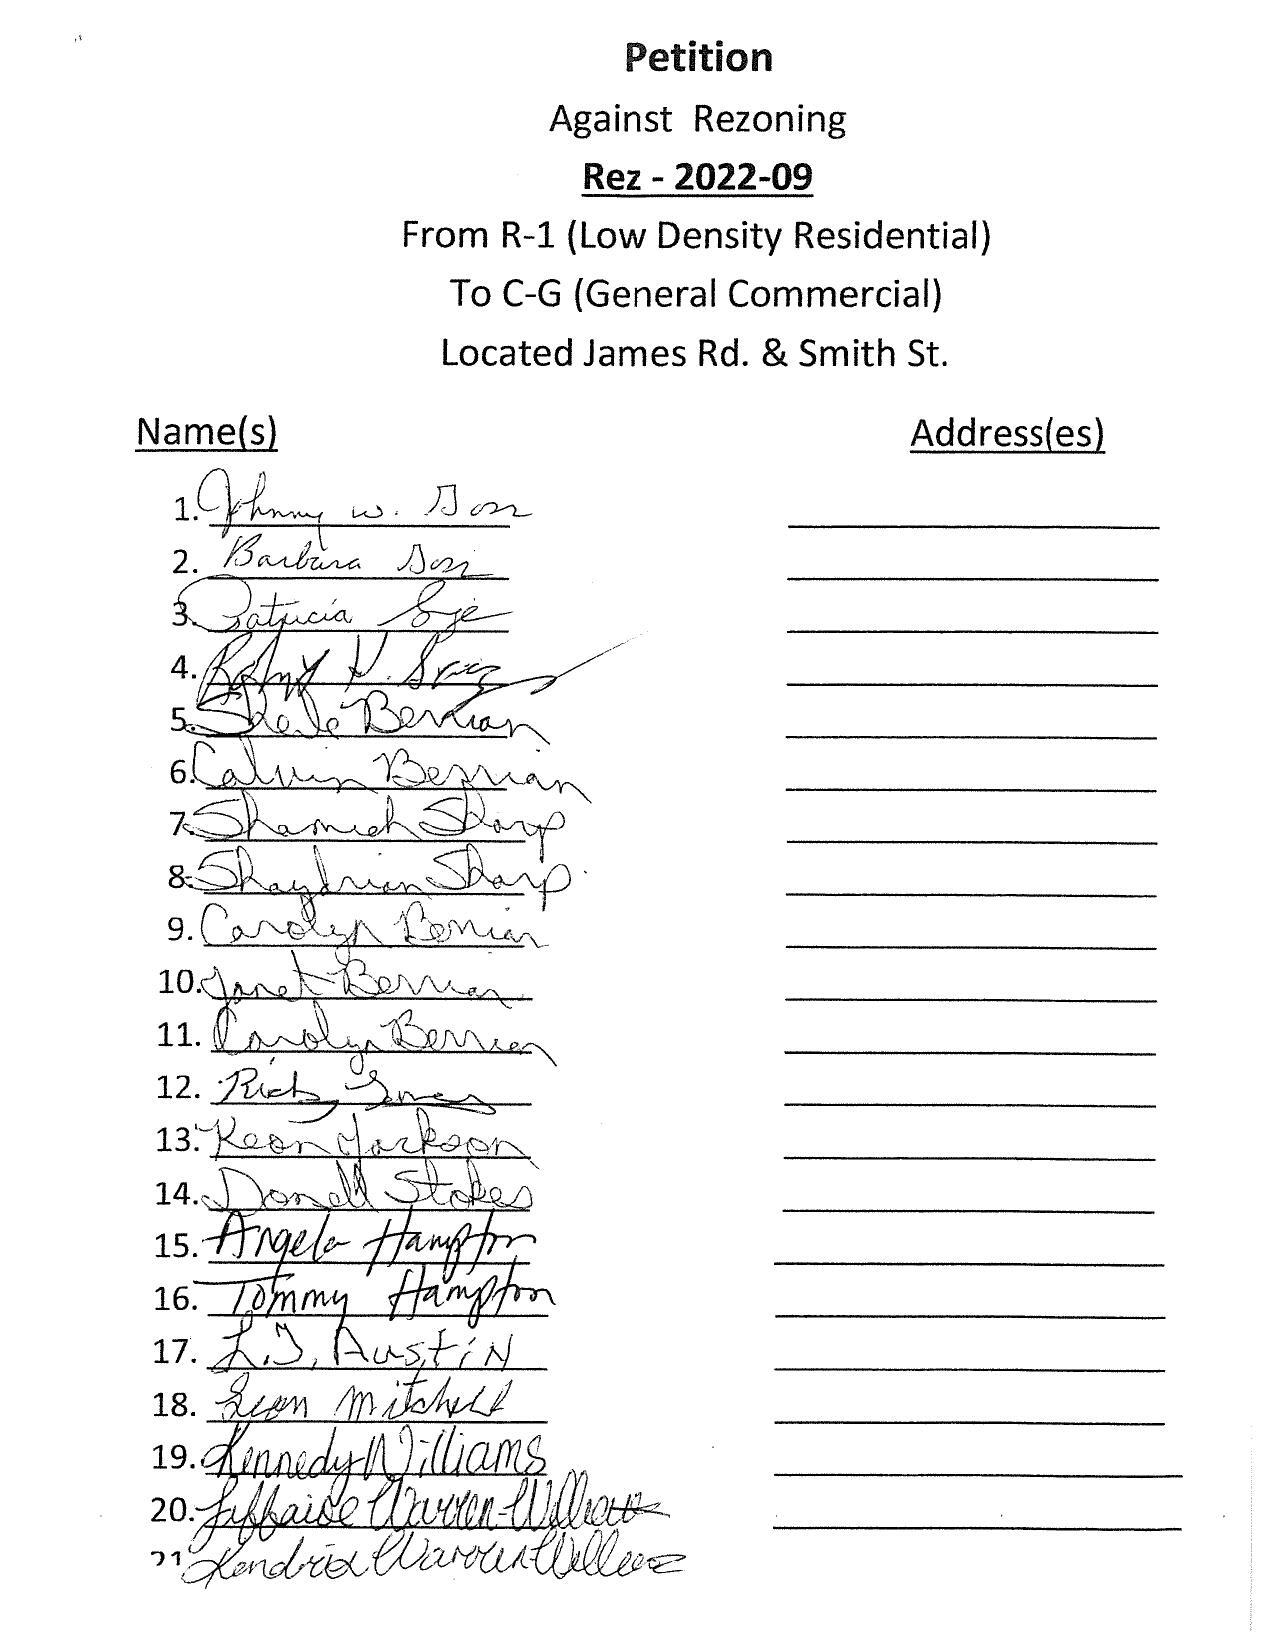 Petition
Against Rezoning
Rez - 2022-09
From R-1 (Low Density Residential)
To C-G (General Commercial)
Located James Rd. & Smith St.
Name(s) Address(es)
1. Johnny W.
2. Barbara
3. Patricia
4.
5. Berrian
6. Calvin Berrian
7. Shamiah Sharp
8. Shaydrian Sharp
9. Carolyn Berrian
10. Janet Berrian
11. Carolyn Berrian
12.
13. Keon Jackson
14. Donell Stokes
15. Angela Hampton
16. Tommy Hampton
17. L.J. Austin
18. Leon Mitchell
19. Kennedy Williams
20. Warren-Williams
21 Kendrix Warren-Williams